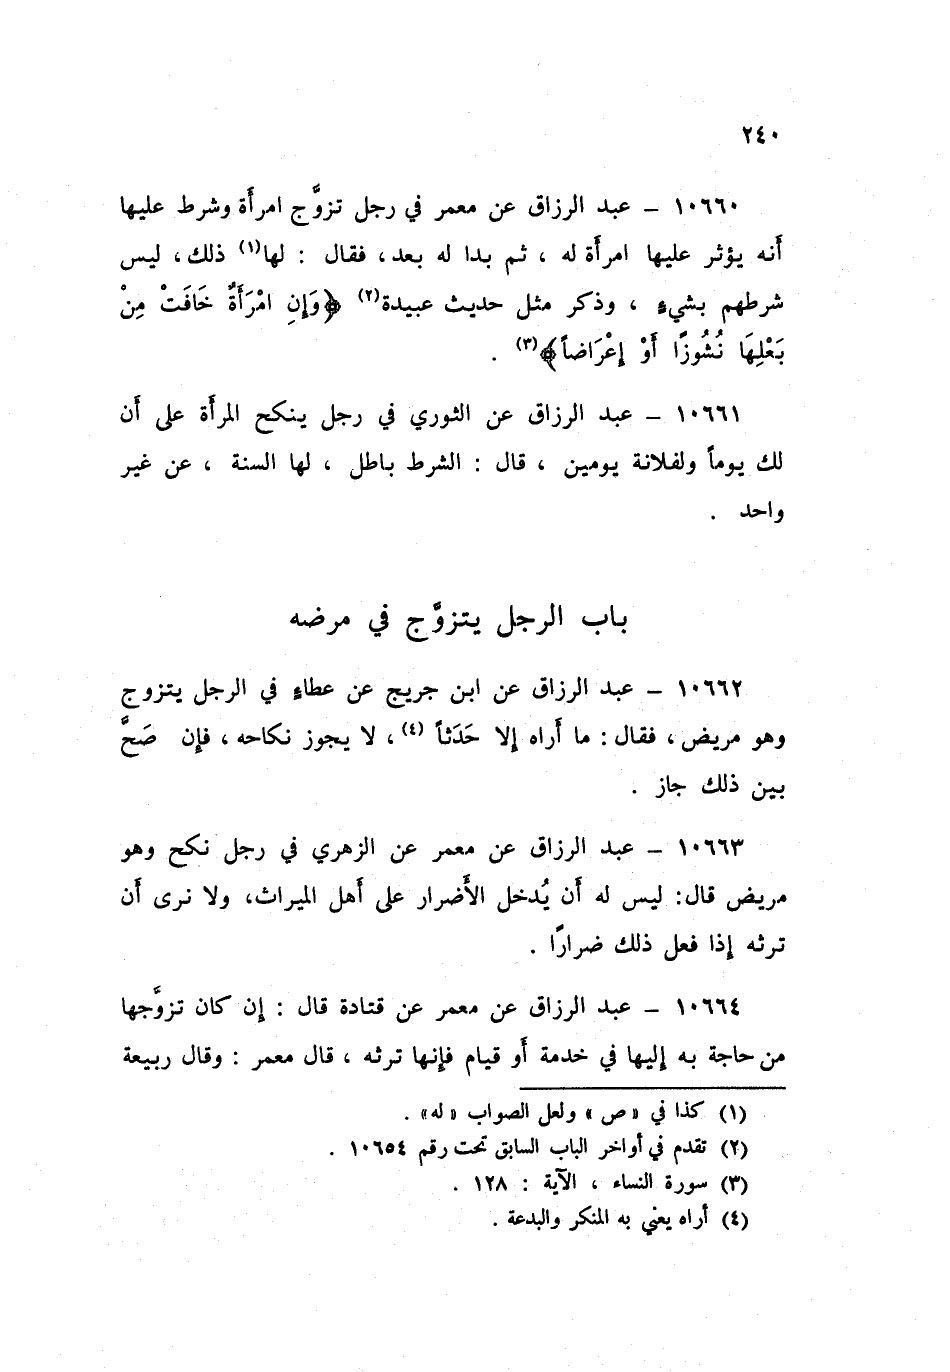 ٢٤٠
١٠٦٦٠ – عبد الرزاق عن معمر في رجل تزوَّج امرأة وشرط عليها
أنه يؤثر عليها امرأة له ، ثم بدا له بعد، فقال : لها(١) ذلك، ليس
شرطهم بشيءٍ ، وذكر مثل حديث عبيدة(٢) ﴿وَإِنِ امْرَأَةٌ خَافَتْ مِنْ
بَعْلِهَا نُشُوزًا أَوْ إِعْرَاضاً﴾(٣) .
١٠٦٦١ – عبد الرزاق عن الثوري في رجل ينكح المرأة على أن
لك يوماً ولفلانة يومين ، قال : الشرط باطل ، لها السنة ، عن غير
واحد .
باب الرجل يتزوَّج في مرضه
١٠٦٦٢ – عبد الرزاق عن ابن جريج عن عطاءٍ في الرجل يتزوج
وهو مريض، فقال : ما أراه إلا حَدَثاً (٤)، لا يجوز نكاحه، فإن صَحَّ
بين ذلك جاز .
١٠٦٦٣ – عبد الرزاق عن معمر عن الزهري في رجل نكح وهو
مريض قال: ليس له أن يُدخل الأضرار على أهل الميراث، ولا نرى أن
ترثه إذا فعل ذلك ضرارًا .
١٠٦٦٤ – عبد الرزاق عن معمر عن قتادة قال : إن كان تزوَّجها
من حاجة به إليها في خدمة أو قيام فإنها ترثه ، قال معمر : وقال ربيعة
(١) كذا في «ص» ولعل الصواب «له» .
(٢) تقدم في أواخر الباب السابق تحت رقم ١٠٦٥٤ .
(٣) سورة النساء ، الآية : ١٢٨ .
(٤) أراه يعني به المنكر والبدعة .